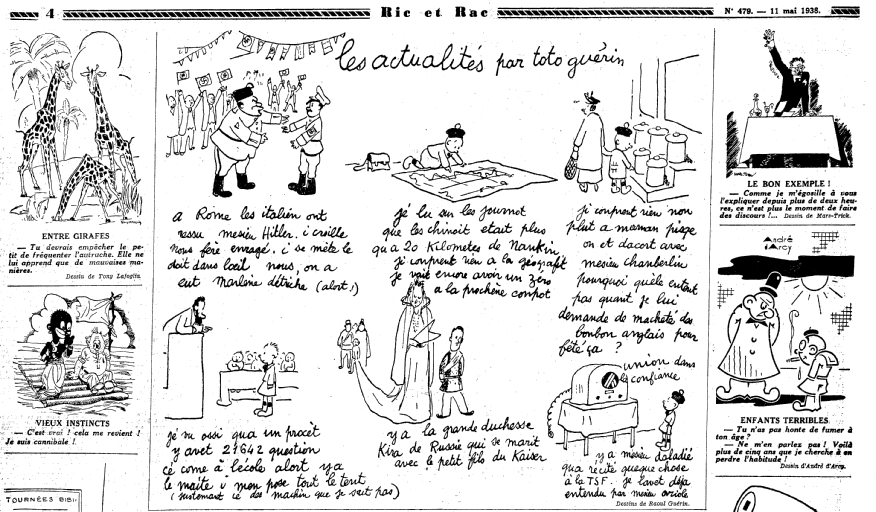 4
Ric et Rac
N° 479. — 11 mai 1938.
les actualités par toto guérin
ENTRE GIRAFES
— Tu devrais empêcher le pe-
tit de fréquenter l'autruche. Elle ne
lui apprend que de mauvaises ma-
nières.
Dessin de Tony
VIEUX INSTINCTS
— C'est vrai ! cela me revient !
Je suis cannibale !
TOURNÉES BIBI
a Rome les italien ont
ressu mesieu Hitler. i croille
nous fère enragé. i se mète le
doit dans l'œil nous, on a
eut marlène détriche (alort!)
jé lu sur les journot
que les chinoit etait plus
qu a 20 Kilometes de Nankin
je conprent rien a la géografit
je vait encore avoir un zéro
a la prochène conpot
je conprent rien non
plut a maman pisqe
on et dacort avec
mesieu chanberlin
pourquoi quèle
pas quant je lui
demande de macheté des
bonbon anglais pour
fété ça ?
jé vu ossi qua un procèt
y avet 21642 question
cé come à lécole alort ya
le maite i mon pose tout le tent
(surtomant cé des machin que je sait pas)
y a la grande duchesse
Kira de Russie qui se marit
avec le petit fils du Kaiser
union dans
la confiance
y a mesieu daladié
qua récité queque chose
à la TSF. je lavet déja
entendu par mesieu oriole
Dessins de Raoul Guérin.
LE BON EXEMPLE !
— Comme je m'égosille à vous
l'expliquer depuis plus de deux heu-
res, ce n'est plus le moment de faire
des discours !... Dessin de Mars-Trick.
André
d'Arcy
ENFANTS TERRIBLES
— Tu n'as pas honte de fumer à
ton âge ?
— Ne m'en parlez pas ! Voilà
plus de cinq ans que je cherche à en
perdre l'habitude !
Dessin d'André d'Arcy.